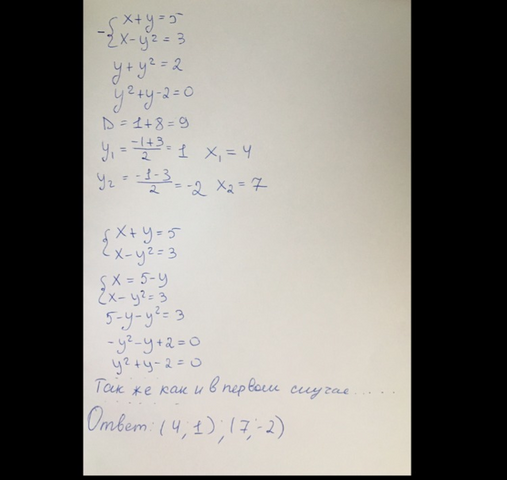 -{ x+y=5
x-y²=3
y+y²=2
y²+y-2=0
D=1+8=9
y₁ = (-1+3)/2 = 1 x₁=4
y₂ = (-1-3)/2 = -2 x₂=7
{ x+y=5
x-y²=3
{ x=5-y
x-y²=3
5-y-y²=3
-y²-y+2=0
y²+y-2=0
Так же как и в первом случае.....
Ответ: (4;1);(7;-2)